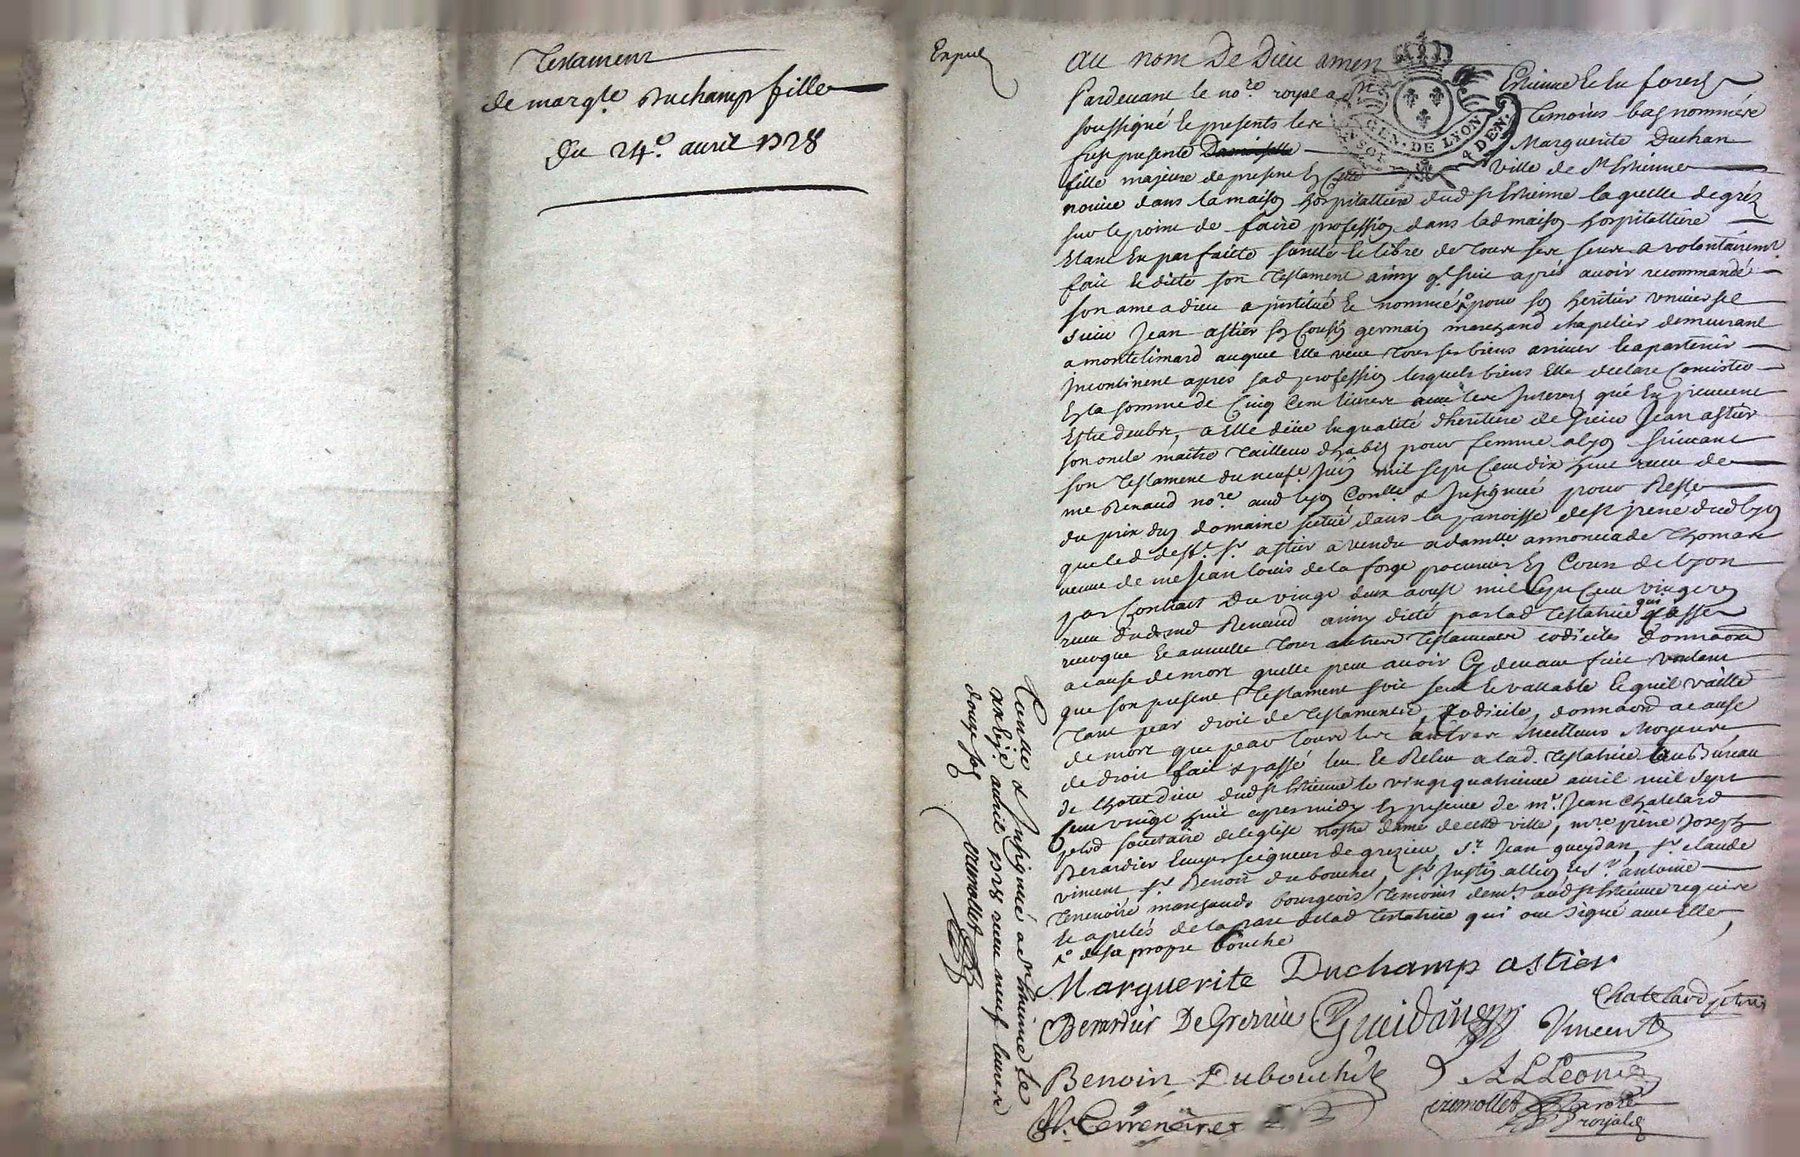 Testament
de margte. Duchamp fille
Du 24e. auril 1728
Expué
au nom De Dieu amen
Pardeuant le nore. royal a St Etienne En forest
soussigné Et presents les temoins bas nommés
fust presente Marguerite Duchan
fille majeure de present En cette ville de St Etienne
novice dans la maison hospitalliere dud St Estienne laquelle
sur le point de faire profession dans lad maison hospitalliere
Etant En parfaitte santé Et libre de tous ses sens a volontairemt
fait Et dicté son testament ainsy q. suit aprés auoir recommandé
son ame a dieu a justitué Et nommé pour son heritier vniuersel
sieur Jean astier son Cousin germain marchand chapelier demeurant
a montelimard auquel Elle veut tous ses biens arriuer Et apartenir
Incontinent apres sad profession lesquels biens Elle declare Consister
En la somme de Cinq Cent liures auec les Interests qui En peuuent
Estre deubs, a Elle düe En qualité dheritiere de sieur Jean astier
son oncle maitre tailleur dhabits pour femme a lyon suiuant
son testament du neufe. Juin mil sept Cent dix huit receu de
me Renaud nore. aud lyon Contlé & Insignué pour Reste
du prix dun domaine scitué dans la paroisse de st jrené dud lyon
que led deft. sr. astier a vendu a damlle annonciade thomas
veuue de me Jean louis de la forge procureur En Cour de lyon
par Contrat Du vingt deux aoust mil sept Cent vingt
receu dud me Renaud ainsy dicté par lad testatrice qui Casse
reuoque Et annulle tous autres testaments codiciles donnaõns
a cause de mort quelle peut auoir Cy deuant fait voulant
que son present testament soit seul Et vallable Et quil vaille
tant par droit de testament, Codicile, donnaõn a cause
de mort que par tous les autres meilleurs moyens
de droit fait & passé leu Et Releu a lad. testatrice au Bureau
de lhotel dieu dud st Estienne le vingt quatrieme auril mil sept
Cent vingt huit apres midy En presence de mr. Jean Chatelard
pbre societaire de leglise nostre dame de cette ville, mre. piere Joseph
Berardier Ecuyer seigneur de grezieu, sr. Jean gueydan, sr. claude
vincent sr. Benoit dubouchet, sr. Justin allion, Et sr. antoine
terrenoire marchands bourgeois temoins demts. aud st Estienne requis
Et apelés de la part de lad testatrice qui ont signé auec Elle
de sa propre bouche
Marguerite Duchamp astier
Chatelard pbtre
Berardier De Grezieu Gueidan Vincent
Benoit Dubouchet
A. Terrenoire
uremollet
notre
royal
Contlé & Insignué a st Etienne le
auril 1728 receu neuf liures
douze sols uremollet
GEN. DE LYON
4 DEN.